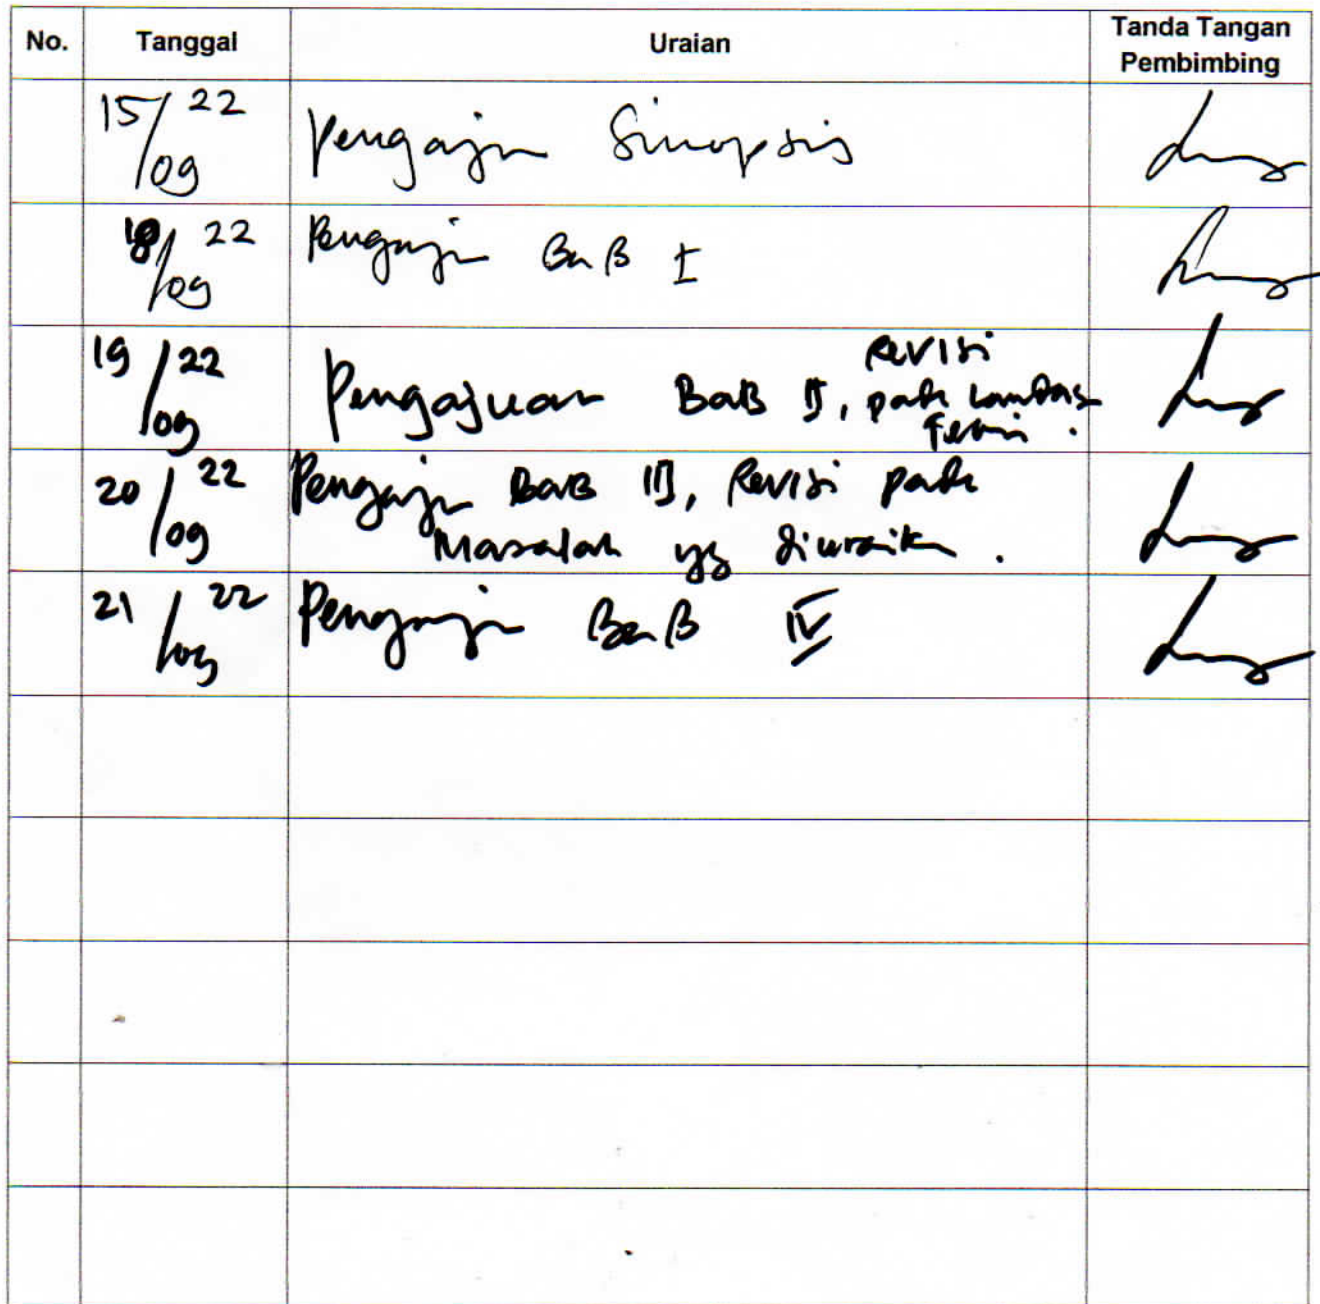 No. Tanggal Uraian Tanda Tangan
Pembimbing
15/09 22 Pengajuan Sinopsis
18/09 22 Pengajuan BaB I
19/09 22 Pengajuan BaB II, revisi
pada landasan
Teori.
20/09 22 Pengajuan BaB III, Revisi pada
Masalah yg diuraikan.
21/09 22 Pengajuan BaB IV